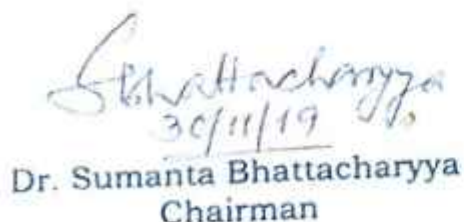 SBhattacharyya
30/11/19
Dr. Sumanta Bhattacharyya
Chairman